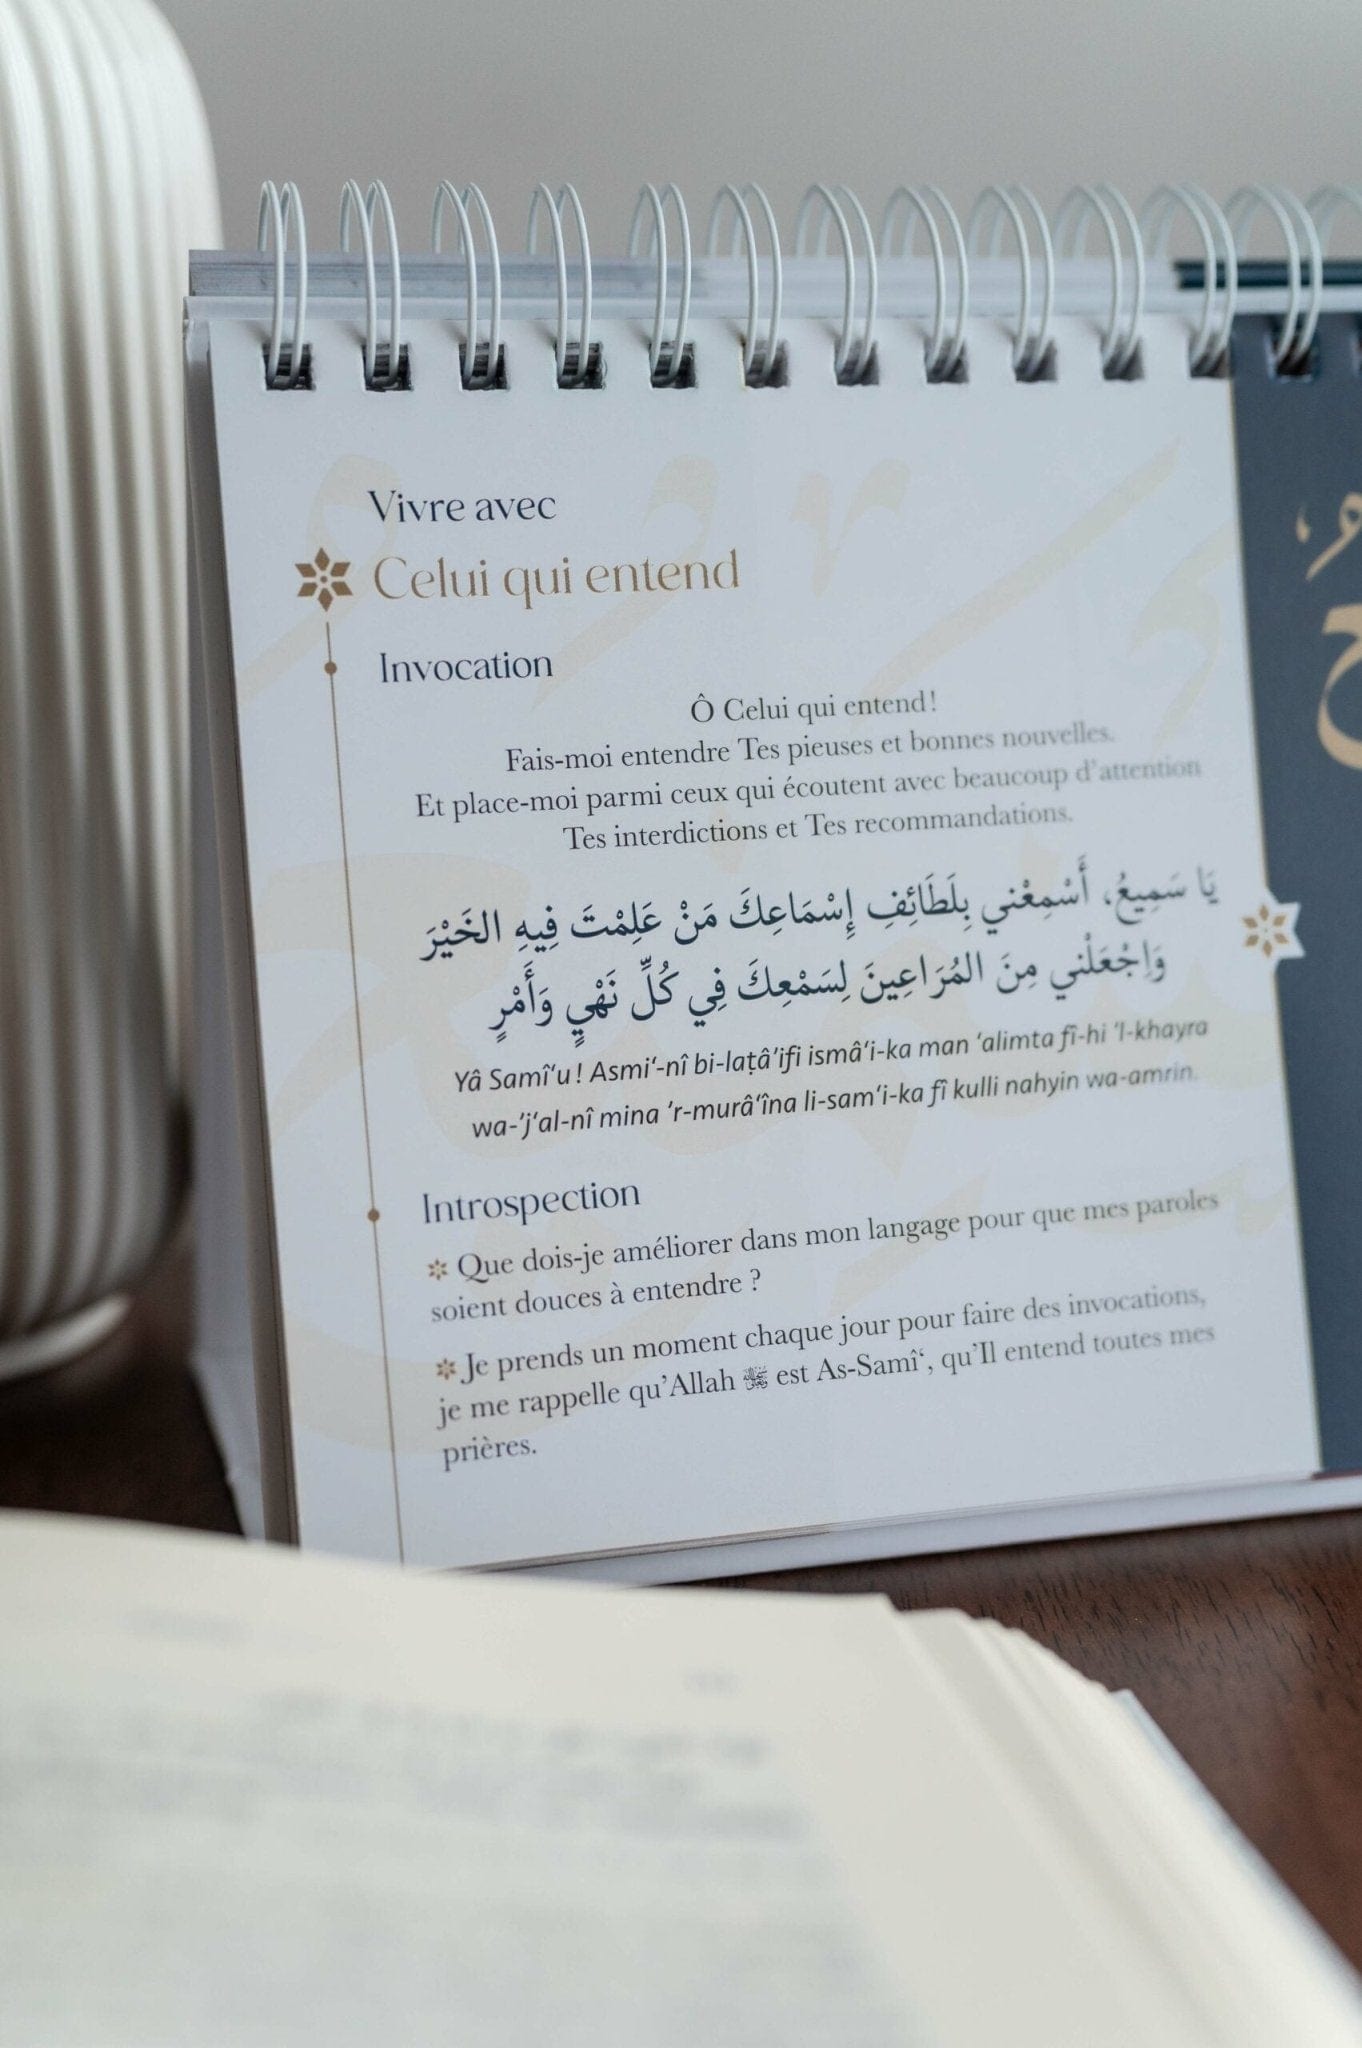 Vivre avec
Celui qui entend
Invocation
Ô Celui qui entend !
Fais-moi entendre Tes pieuses et bonnes nouvelles.
Et place-moi parmi ceux qui écoutent avec beaucoup d’attention
Tes interdictions et Tes recommandations.
يَا سَمِيعُ، أَسْمِعْني بِلَطَائِفِ إِسْمَاعِكَ مَنْ عَلِمْتَ فِيهِ الخَيْرَ
وَاِجْعَلْني مِنَ المُرَاعِينَ لِسَمْعِكَ فِي كُلِّ نَهْيٍ وَأَمْرٍ
Yâ Samî‘u ! Asmi‘-nî bi-laṭâ’ifi ismâ‘i-ka man ‘alimta fî-hi ’l-khayra
wa-’j‘al-nî mina ’r-murâ‘îna li-sam‘i-ka fî kulli nahyin wa-amrin.
Introspection
Que dois-je améliorer dans mon langage pour que mes paroles
soient douces à entendre ?
Je prends un moment chaque jour pour faire des invocations,
je me rappelle qu’Allah ﷻ est As-Samî‘, qu’Il entend toutes mes
prières.